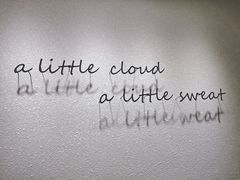 a little cloud
a little sweat